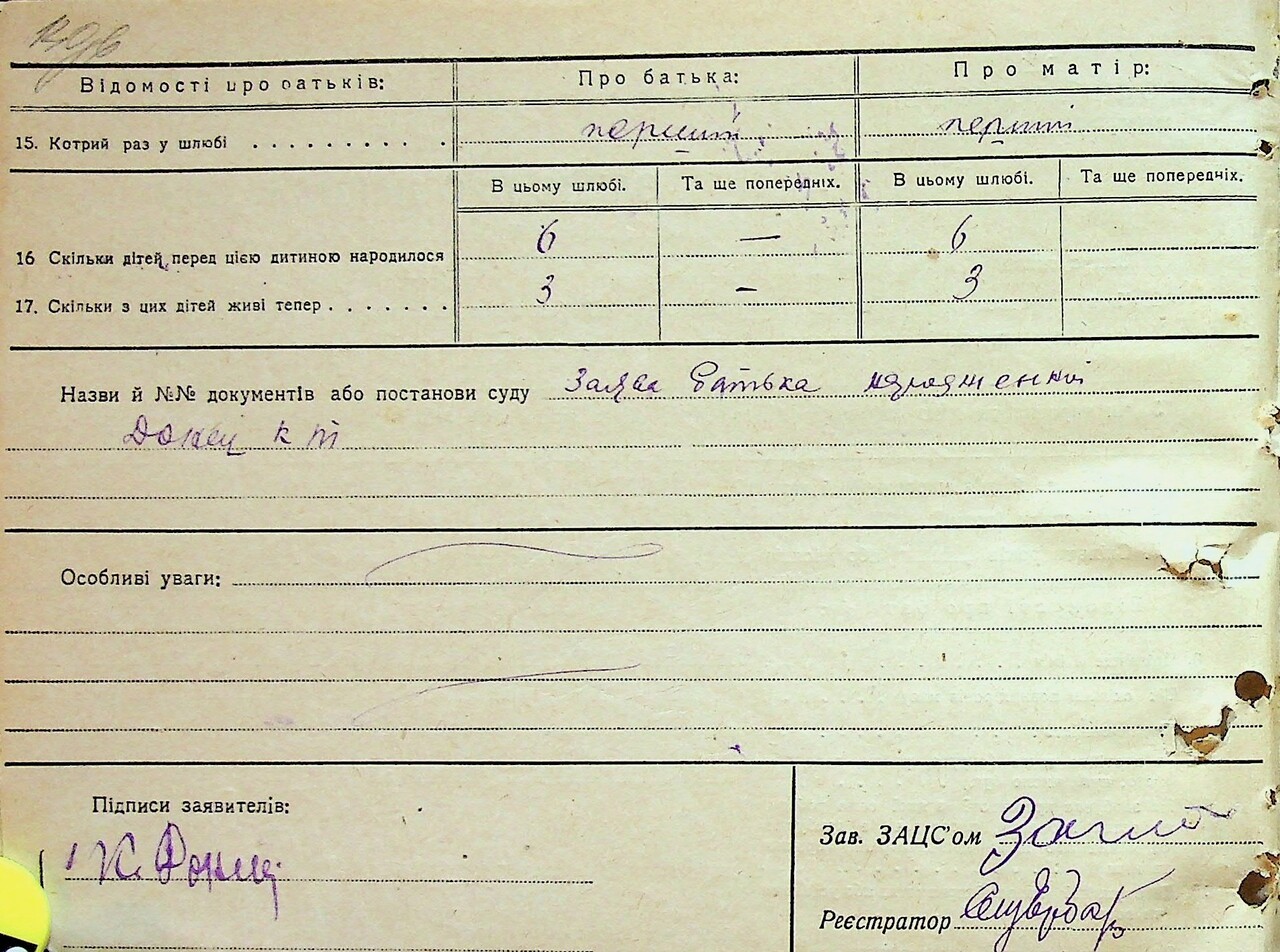 Відомості про батьків: Про батька: Про матір:
15. Котрий раз у шлюбі . . . . . . . . . . перший перший
В цьому шлюбі. Та ще попередніх. В цьому шлюбі. Та ще попередніх.
16 Скільки дітей перед цією дитиною народилося 6 — 6
17. Скільки з цих дітей живі тепер . . . . . . . 3 - 3
Назви й №№ документів або постанови суду Заява батька
Особливі уваги:
Підписи заявителів:
К.
Зав. ЗАЦС'ом
Реєстратор